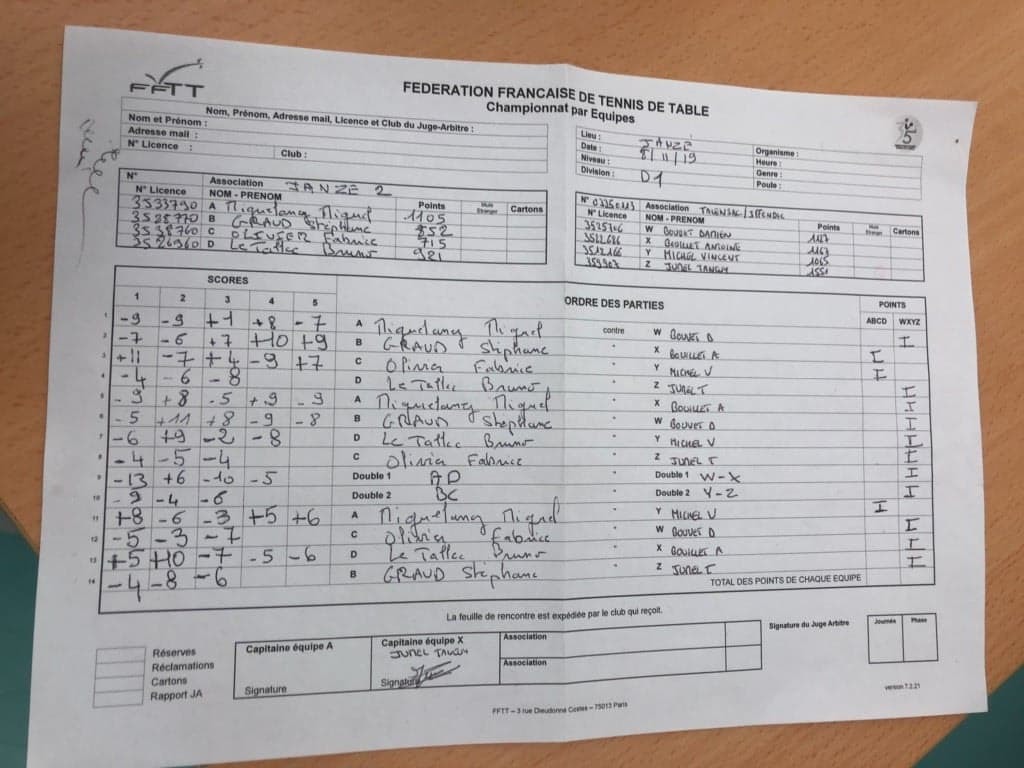 FFTT
FEDERATION FRANCAISE DE TENNIS DE TABLE
Championnat par Equipes
Nom, Prénom, Adresse mail, Licence et Club du Juge-Arbitre :
Nom et Prénom :
Adresse mail :
N° Licence : Club :
Lieu : JANZE Organisme :
Date : 8/11/19 Heure :
Niveau : Genre :
Division : D1 Poule :
N° Association JANZE 2
N° Licence NOM - PRENOM Points Mute Etranger Cartons
3533790 A Miquelany Miquel 1105
3525770 B GRAUD Stéphane 852
3538760 C OLIVIER Fabrice 715
3526960 D Le Tallec Bruno 921
N° Association TALENSAC/IFFENDIC
N° Licence NOM - PRENOM Points Mute Etranger Cartons
W BOUVET DAMIEN
X BOUILLET ANTOINE
Y MICHEL VINCENT 1065
Z JUNEL TANGUY
SCORES ORDRE DES PARTIES POINTS
1 2 3 4 5 ABCD WXYZ
1 -9 -9 +1 +8 -7 A Miquelany Miquel contre W BOUVET D I
2 -7 -6 +7 +10 +9 B GRAUD Stéphane " X BOUILLET A I
3 +11 -7 +4 -9 +7 C Olivier Fabrice " Y MICHEL V I
4 -4 -6 -8 D Le Tallec Bruno " Z JUNEL T I
5 -9 +8 -5 +9 -9 A Miquelany Miquel " X BOUILLET A I
6 -5 +11 +8 -9 -8 B GRAUD Stéphane " W BOUVET D I
7 -6 +9 -2 -8 D Le Tallec Bruno " Y MICHEL V I
8 -4 -5 -4 C Olivier Fabrice " Z JUNEL T I
9 -13 +6 -10 -5 Double 1 AD " Double 1 W-X I
10 -9 -4 -6 Double 2 BC " Double 2 Y-Z I
11 +8 -6 -3 +5 +6 A Miquelany Miquel " Y MICHEL V I
12 -5 -3 -7 C Olivier Fabrice " W BOUVET D I
13 +5 +10 -7 -5 -6 D Le Tallec Bruno " X BOUILLET A I
14 -4 -8 -6 B GRAUD Stéphane " Z JUNEL T I
TOTAL DES POINTS DE CHAQUE EQUIPE
La feuille de rencontre est expédiée par le club qui reçoit.
Réserves
Réclamations
Cartons
Rapport JA
Capitaine équipe A
Signature
Capitaine équipe X
JUNEL TANGUY
Signature
Association
Association
Signature du Juge Arbitre
Journée Phase
version 7.2.21
FFTT – 3 rue Dieudonné Costes – 75013 Paris